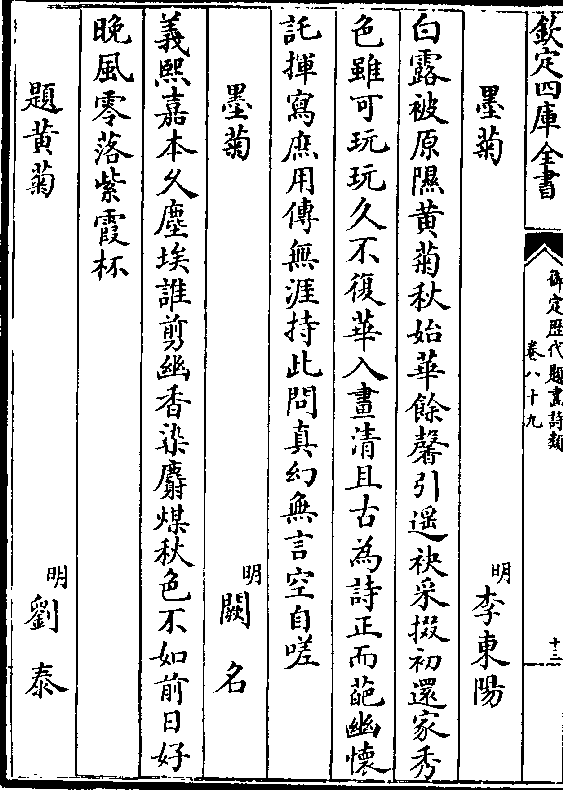 欽定四庫全書
御定歴代題畫詩類
卷八十九
十三
墨菊
明 李東陽
白露被原隰黄菊秋始華餘馨引遥袂采掇初還家秀
色雖可玩玩久不復華入畫清且古為詩正而葩幽懷
託揮寫庶用傳無涯持此問真幻無言空自嗟
墨菊
明 闕名
義熙嘉本久塵埃誰剪幽香染麝煤秋色不如前日好
晚風零落紫霞杯
題黄菊
明 劉泰